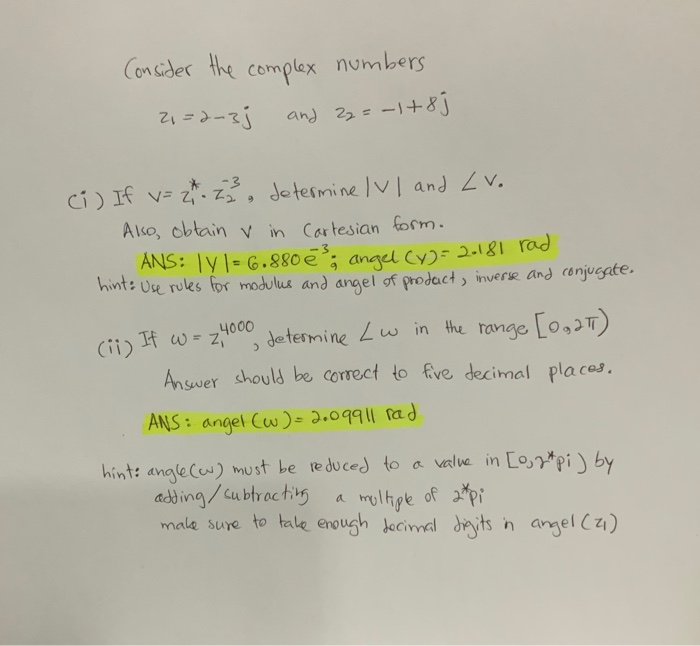 Consider the complex numbers
z₁ = 2-3j and z₂ = -1+8j
(i) If v = z₁*. z₂⁻³, determine |v| and ∠v.
Also, obtain v in Cartesian form.
ANS: |v| = 6.880 e⁻³; angel (v) = 2.181 rad
hint: Use rules for modulus and angel of product, inverse and conjugate.
(ii) If ω = z₁⁴⁰⁰⁰, determine ∠ω in the range [0,2π)
Answer should be correct to five decimal places.
ANS: angel (ω) = 2.09911 rad
hint: angle(ω) must be reduced to a value in [0,2*pi) by
adding/subtracting a multiple of 2*pi
make sure to take enough decimal digits in angel (z₁)